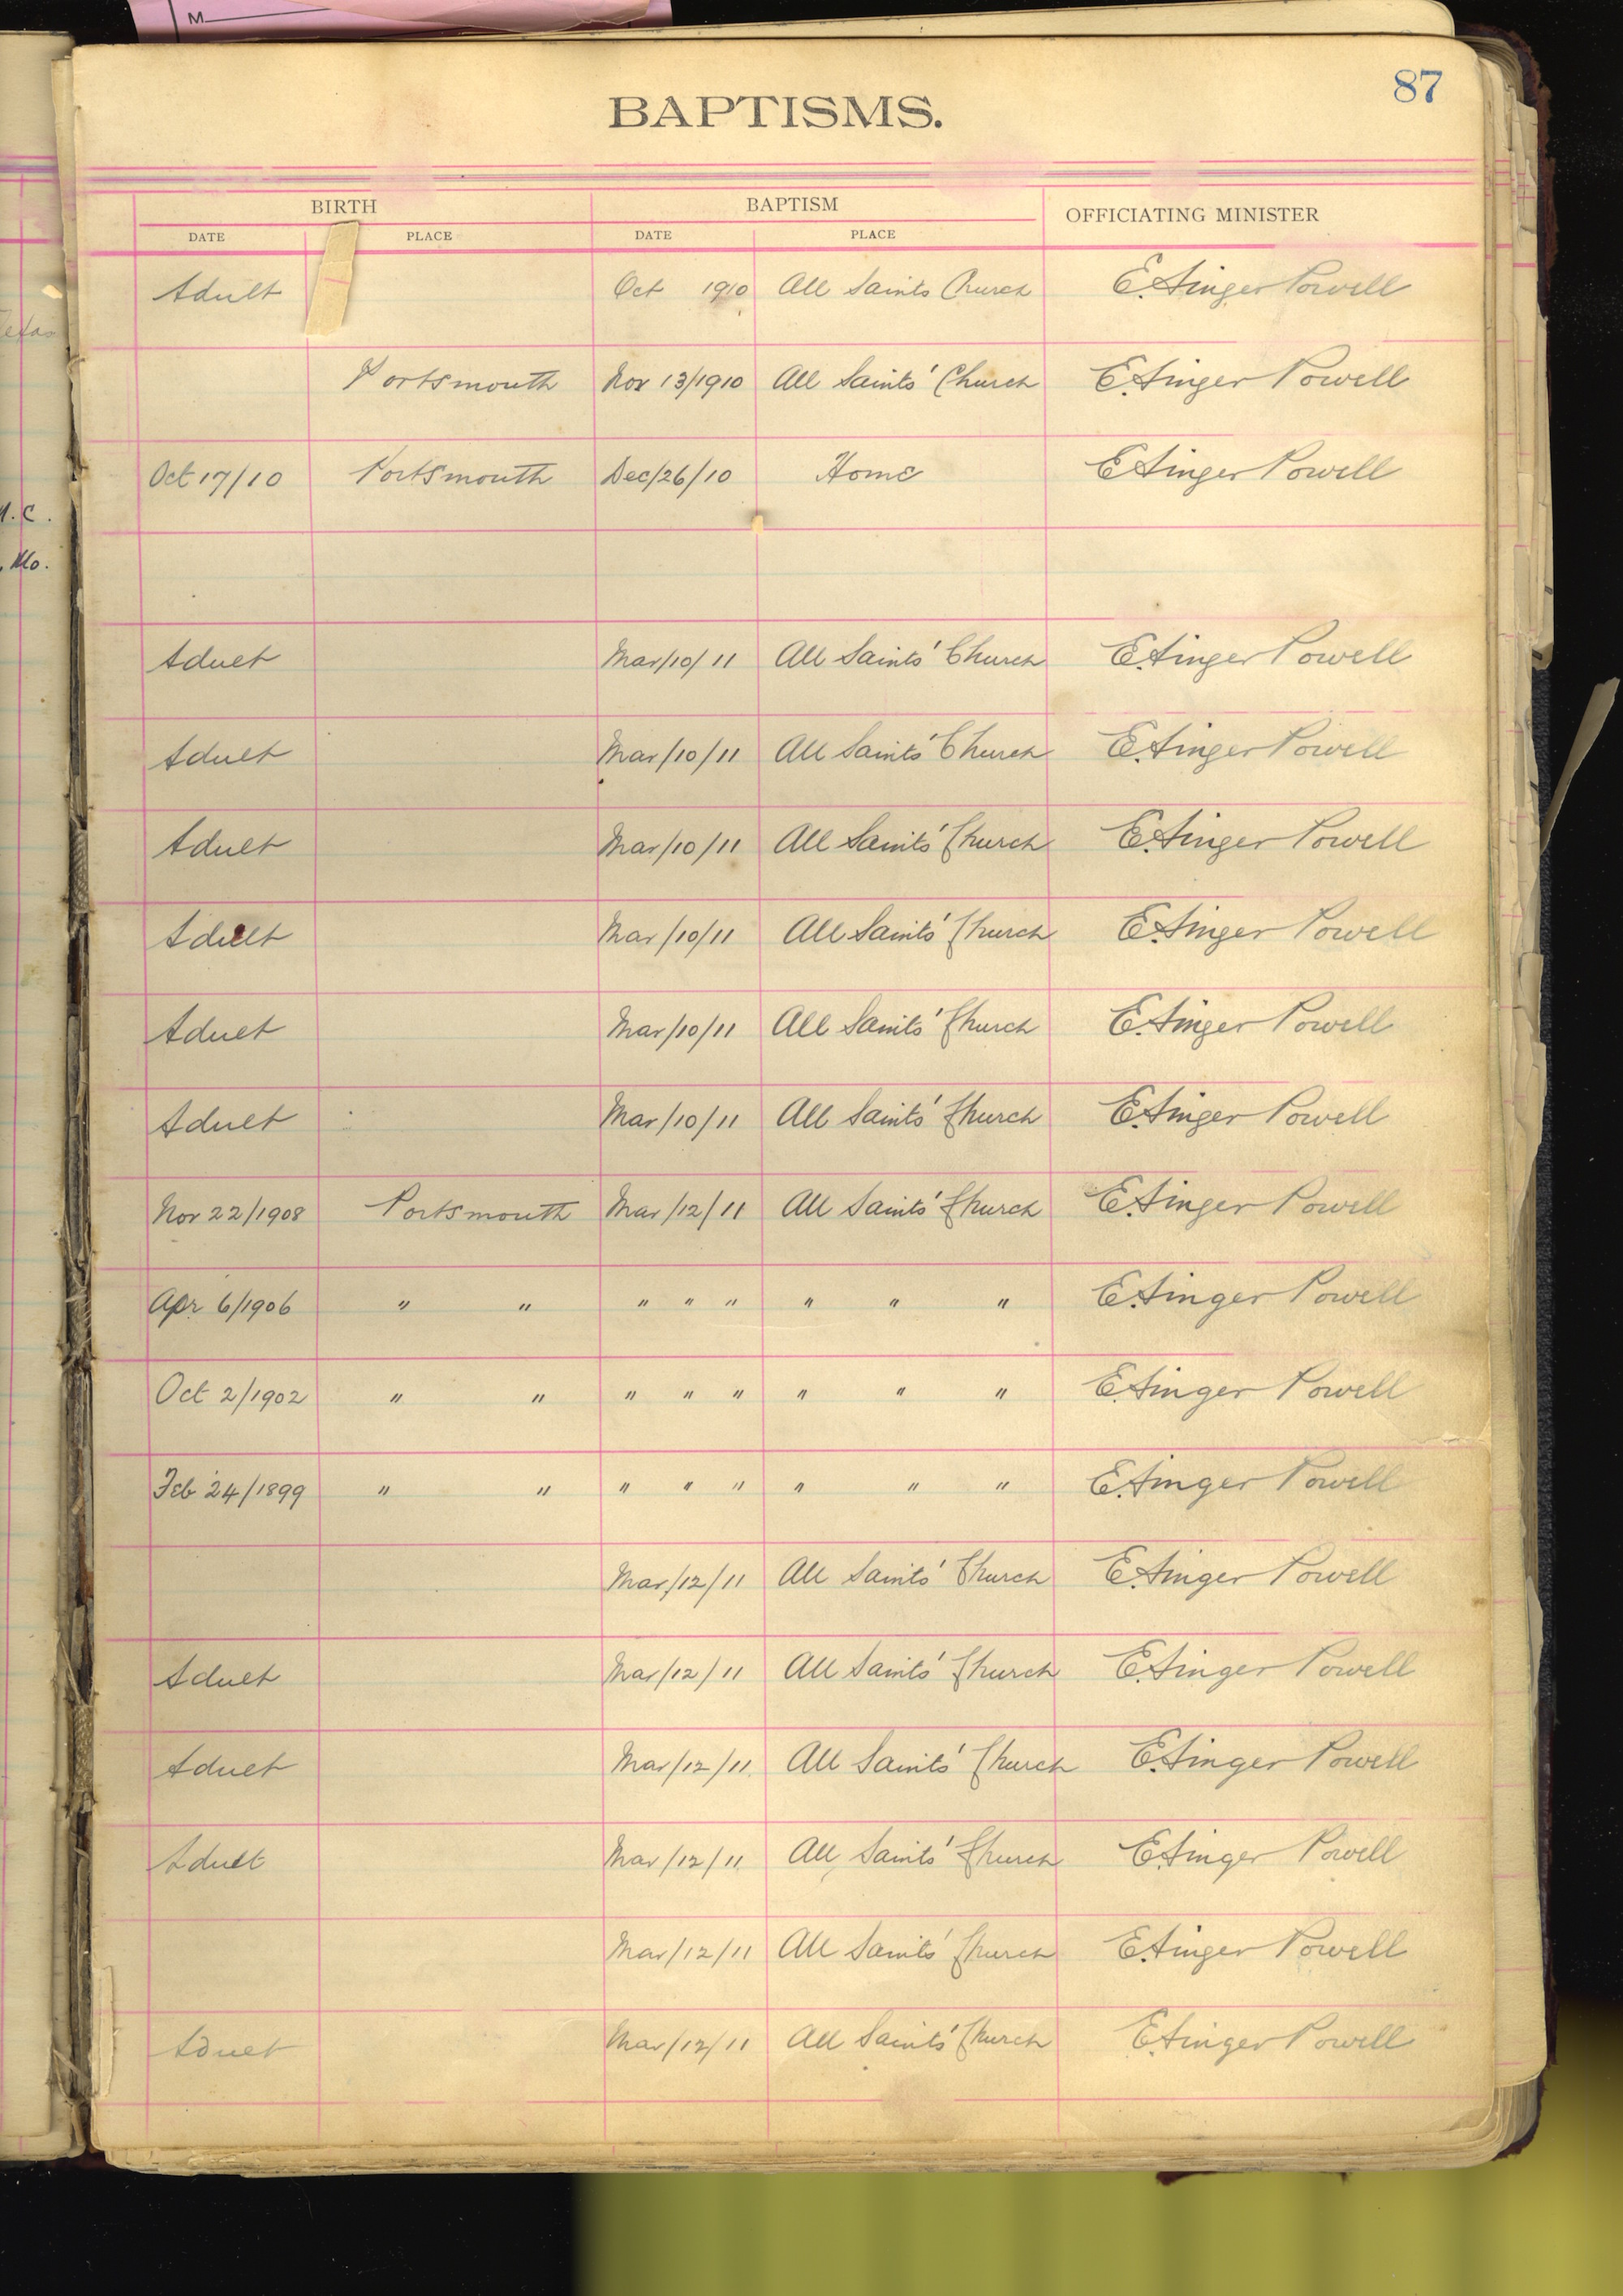 M
87
BAPTISMS.
BIRTH BAPTISM OFFICIATING MINISTER
DATE PLACE DATE PLACE
Adult Oct 1910 All Saints Church E. Ainger Powell
Texas
Portsmouth Nov 13/1910 All Saints' Church E. Ainger Powell
Oct 17/10 Portsmouth Dec/26/10 Home E. Ainger Powell
. C.
. Mo.
Adult Mar/10/11 All Saints' Church E. Ainger Powell
Adult Mar/10/11 All Saints' Church E. Ainger Powell
Adult Mar/10/11 All Saints' Church E. Ainger Powell
Adult Mar/10/11 All Saints' Church E. Ainger Powell
Adult Mar/10/11 All Saints' Church E. Ainger Powell
Adult Mar/10/11 All Saints' Church E. Ainger Powell
Nov 22/1908 Portsmouth Mar/12/11 All Saints' Church E. Ainger Powell
Apr 6/1906 " " " " " " " " E. Ainger Powell
Oct 2/1902 " " " " " " " " E. Ainger Powell
Feb 24/1899 " " " " " " " " E. Ainger Powell
Mar/12/11 All Saints' Church E. Ainger Powell
Adult Mar/12/11 All Saints' Church E. Ainger Powell
Adult Mar/12/11 All Saints' Church E. Ainger Powell
Adult Mar/12/11 All Saints' Church E. Ainger Powell
Mar/12/11 All Saints' Church E. Ainger Powell
Adult Mar/12/11 All Saints' Church E. Ainger Powell